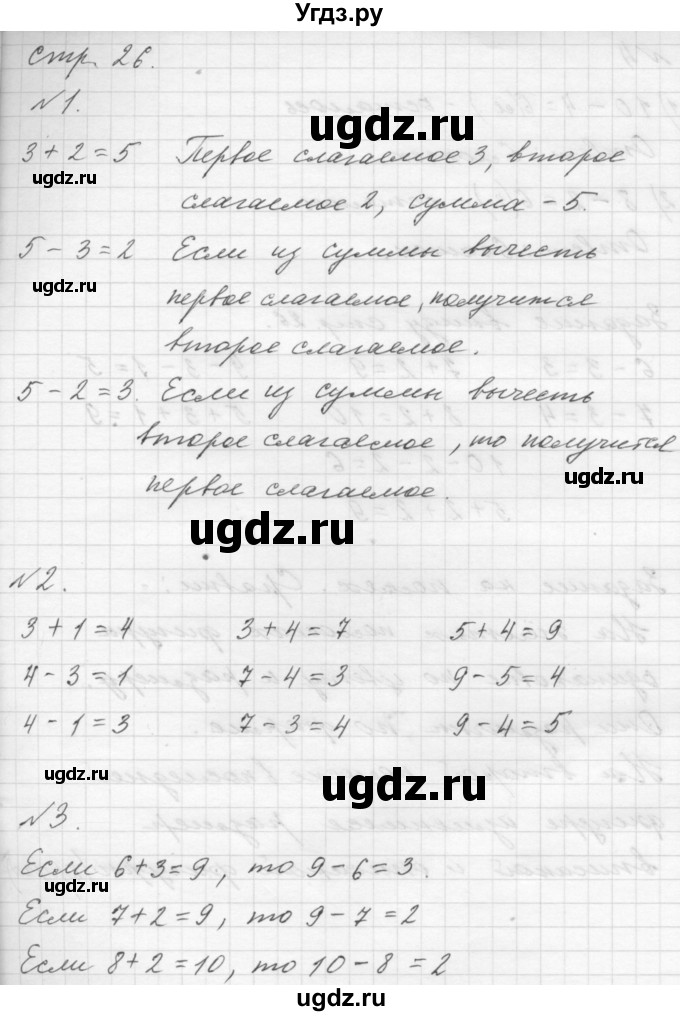 Угдз.ру
стр. 26.
№1.
ugdz.ru
3 + 2 = 5 Первое слагаемое 3, второе
ugdz.ru
слагаемое 2, сумма - 5.
5 - 3 = 2 Если из суммы вычесть
ugdz.ru
первое слагаемое, получится
второе слагаемое.
5 - 2 = 3. Если из суммы вычесть
второе слагаемое, то получится
ugdz.ru
первое слагаемое.
ugdz.ru
№2.
3 + 1 = 4 3 + 4 = 7 5 + 4 = 9
4 - 3 = 1 7 - 4 = 3 9 - 5 = 4
4 - 1 = 3 7 - 3 = 4 9 - 4 = 5
ugdz.ru
ugdz.ru
№3.
Если 6 + 3 = 9, то 9 - 6 = 3.
ugdz.ru
Если 7 + 2 = 9, то 9 - 7 = 2
Если 8 + 2 = 10, то 10 - 8 = 2
ugdz.ru